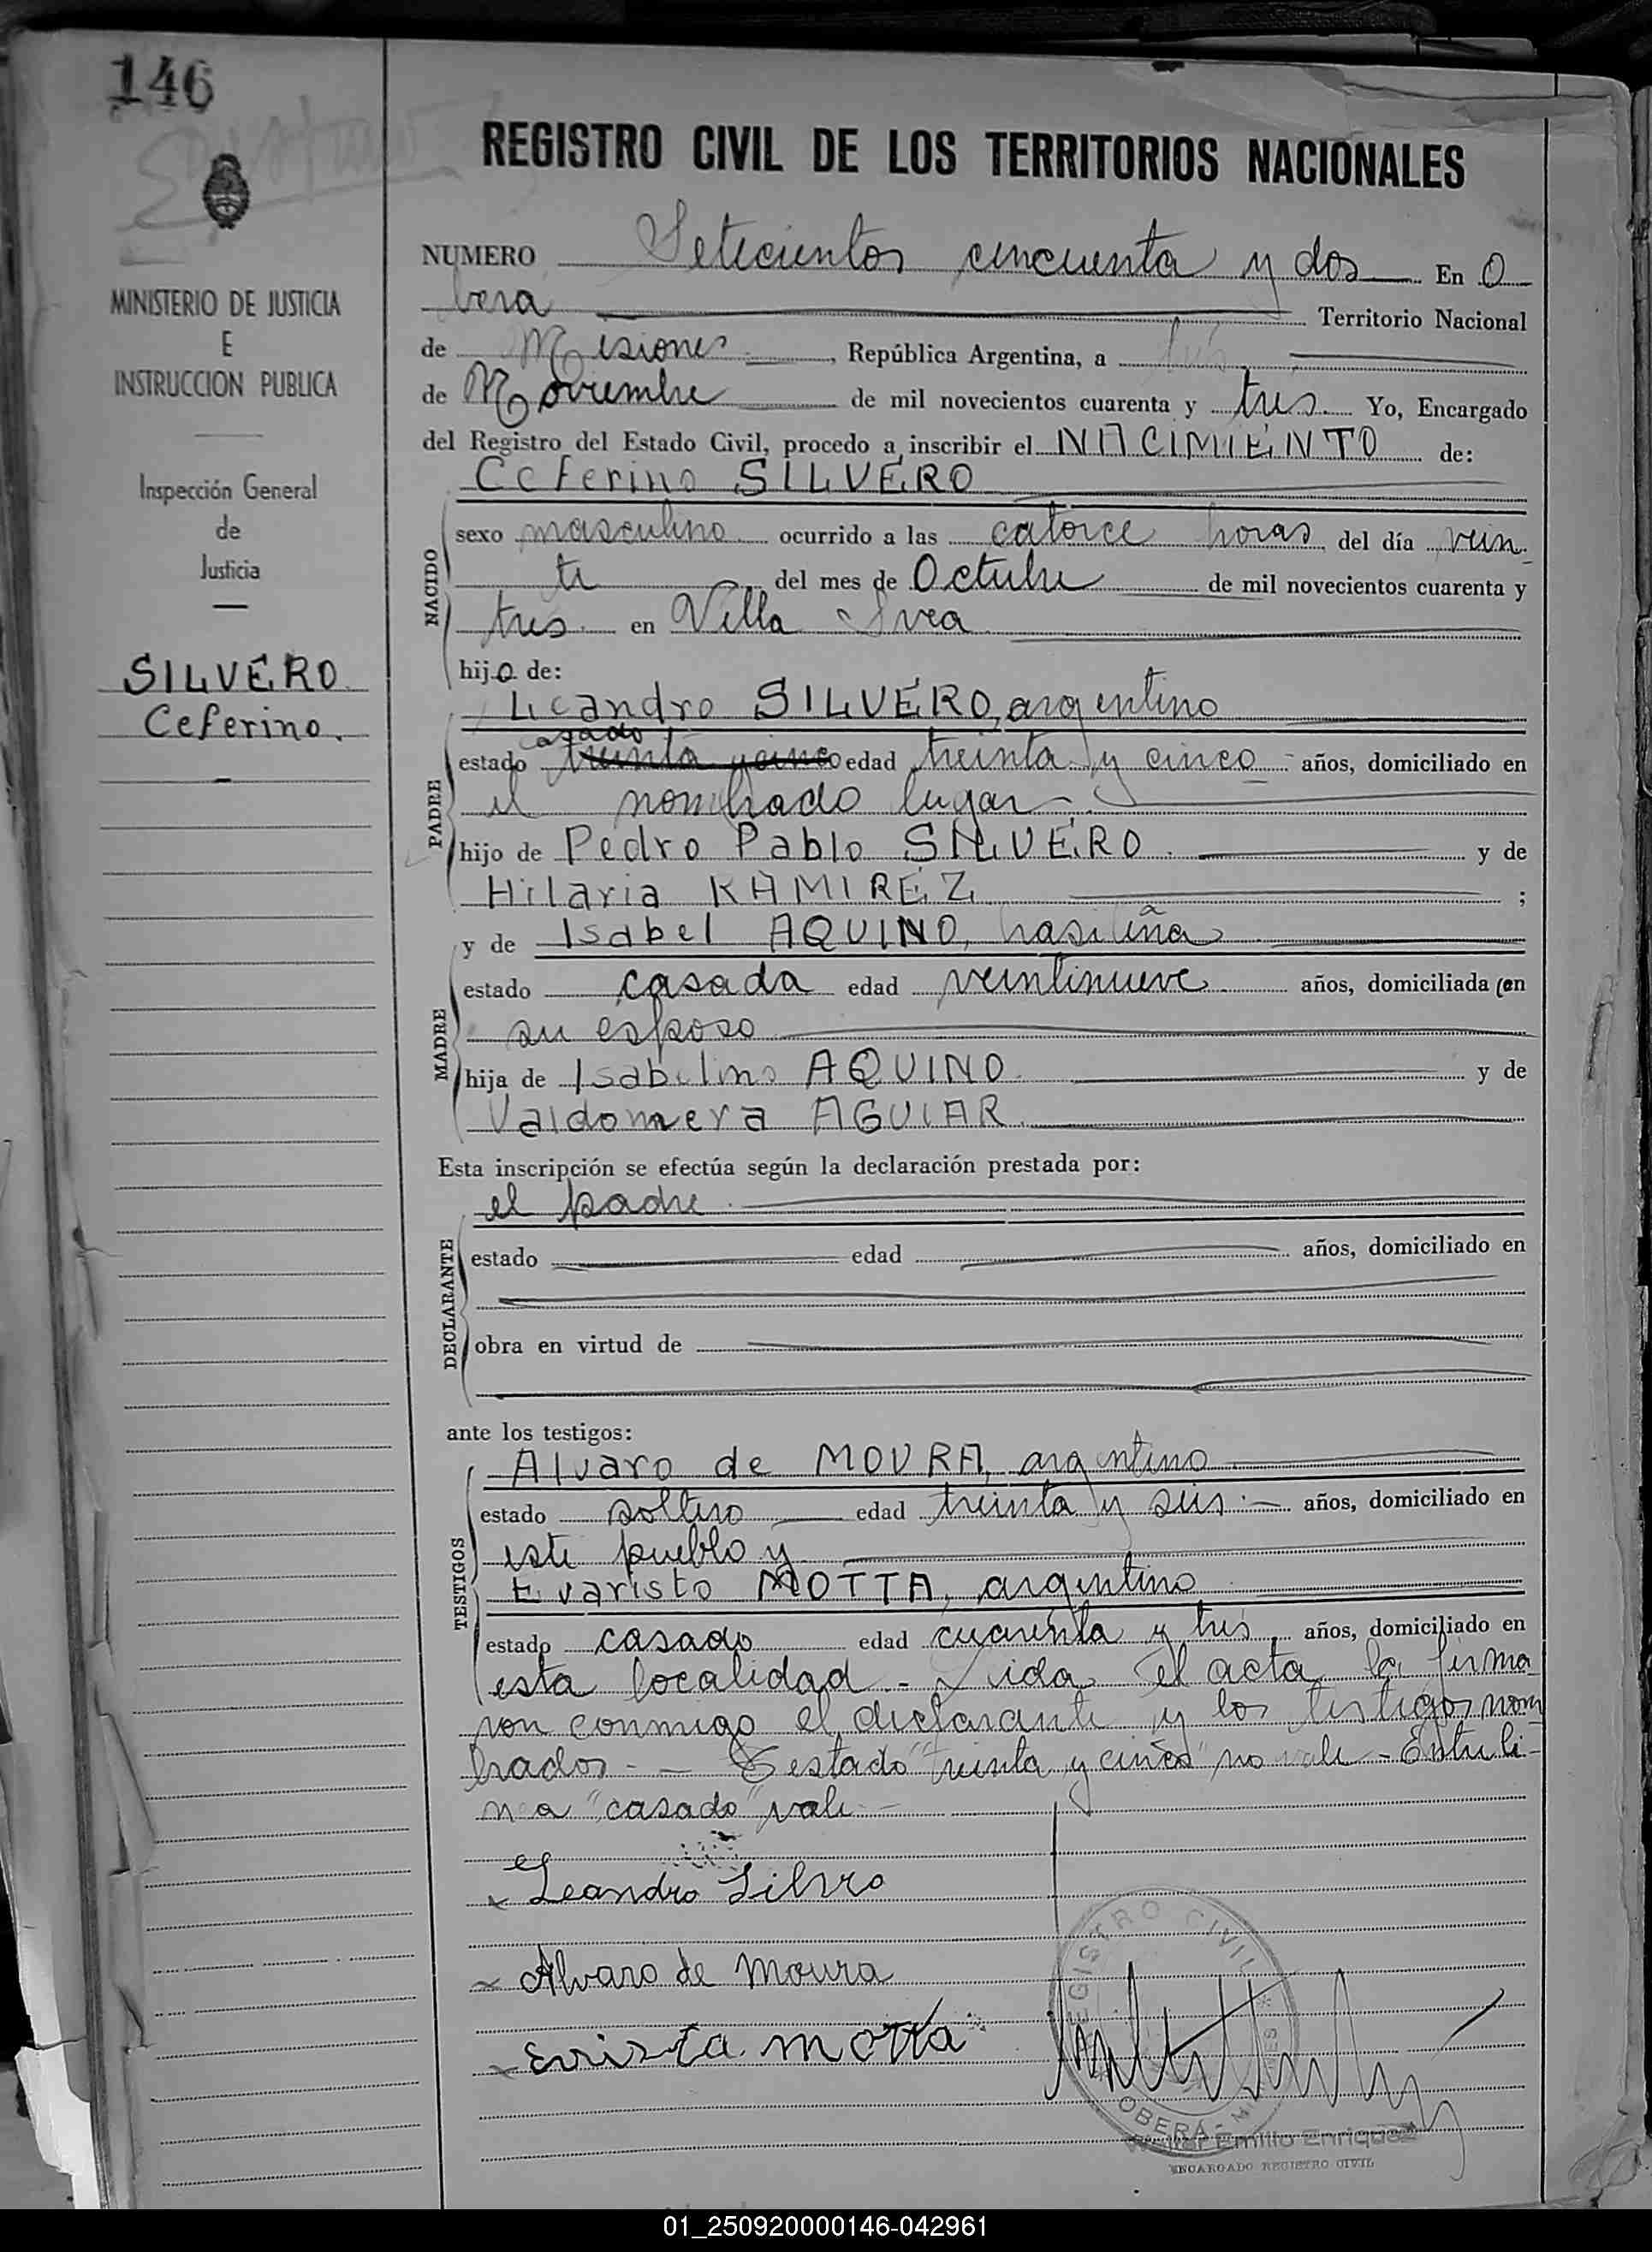 146
REGISTRO CIVIL DE LOS TERRITORIOS NACIONALES
MINISTERIO DE JUSTICIA
E
INSTRUCCION PUBLICA
Inspección General
de
Justicia
SILVERO
Ceferino.
NUMERO Setecientos cincuenta y dos En O
bera Territorio Nacional
de Misiones, República Argentina, a
de Noviembre de mil novecientos cuarenta y tres. Yo, Encargado
del Registro del Estado Civil, procedo a inscribir el NACIMIENTO de:
Ceferino SILVERO
NACIDO
sexo masculino ocurrido a las catorce horas del día vein
te del mes de Octubre de mil novecientos cuarenta y
tres en Villa Svea
hijo de:
Licandro SILVERO, argentino
PADRE
casado
estado treinta y cinco edad treinta y cinco años, domiciliado en
el nombrado lugar
hijo de Pedro Pablo SILVERO y de
Hilaria RAMIREZ ;
y de Isabel AQUINO, brasileña
MADRE
estado casada edad veintinueve años, domiciliada con
su esposo
hija de Isabelino AQUINO y de
Valdomera AGUIAR
Esta inscripción se efectúa según la declaración prestada por:
el padre
DECLARANTE
estado edad años, domiciliado en
obra en virtud de
ante los testigos:
Alvaro de MOURA, argentino
TESTIGOS
estado soltero edad treinta y seis años, domiciliado en
este pueblo y
Evaristo MOTTA, argentino
estado casado edad cuarenta y tres, años, domiciliado en
esta localidad.- Leida el acta la firma
ron conmigo el declarante y los testigos nom
brados.- Testado "treinta y cinco" no vale - Entreli-
nea "casado" vale
Leandro Silvero
Alvaro de Moura
Motta
REGISTRO CIVIL
OBERÁ
Emilio Enriquez
ENCARGADO REGISTRO CIVIL
01_250920000146-042961